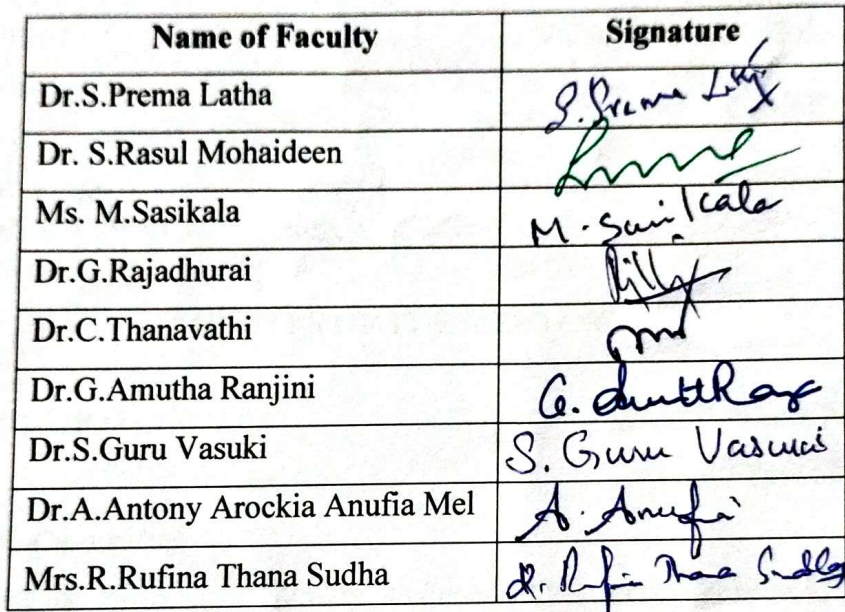 Name of Faculty Signature
Dr.S.Prema Latha S.Prema
Dr. S.Rasul Mohaideen
Ms. M.Sasikala M.Sasikala
Dr.G.Rajadhurai
Dr.C.Thanavathi
Dr.G.Amutha Ranjini G.
Dr.S.Guru Vasuki S. Guru Vasuki
Dr.A.Antony Arockia Anufia Mel A. Anufia
Mrs.R.Rufina Thana Sudha R. Rufina Thana Sudha